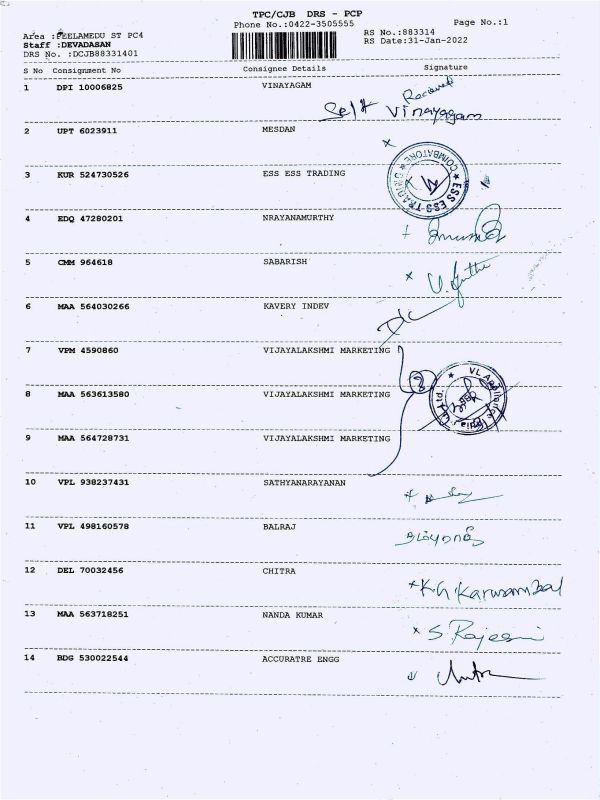 TPC/CJB DRS - PCP
Phone No.:0422-3505555
Page No.:1
Area :PEELAMEDU ST PC4
RS No.:883314
Staff :DEVADASAN
RS Date:31-Jan-2022
DRS No. :DCJB88331401
S No Consignment No Consignee Details Signature
1 DPI 10006825 VINAYAGAM
Received
Self Vinayagam
2 UPT 6023911 MESDAN
3 KUR 524730526 ESS ESS TRADING
COIMBATORE ★ ESS ESS TRADING
4 EDQ 47280201 NRAYANAMURTHY
5 CMM 964618 SABARISH
6 MAA 564030266 KAVERY INDEV
7 VPM 4590860 VIJAYALAKSHMI MARKETING
8 MAA 563613580 VIJAYALAKSHMI MARKETING
9 MAA 564728731 VIJAYALAKSHMI MARKETING
10 VPL 938237431 SATHYANARAYANAN
11 VPL 498160578 BALRAJ
12 DEL 70032456 CHITRA
13 MAA 563718251 NANDA KUMAR
14 BDG 530022544 ACCURATRE ENGG